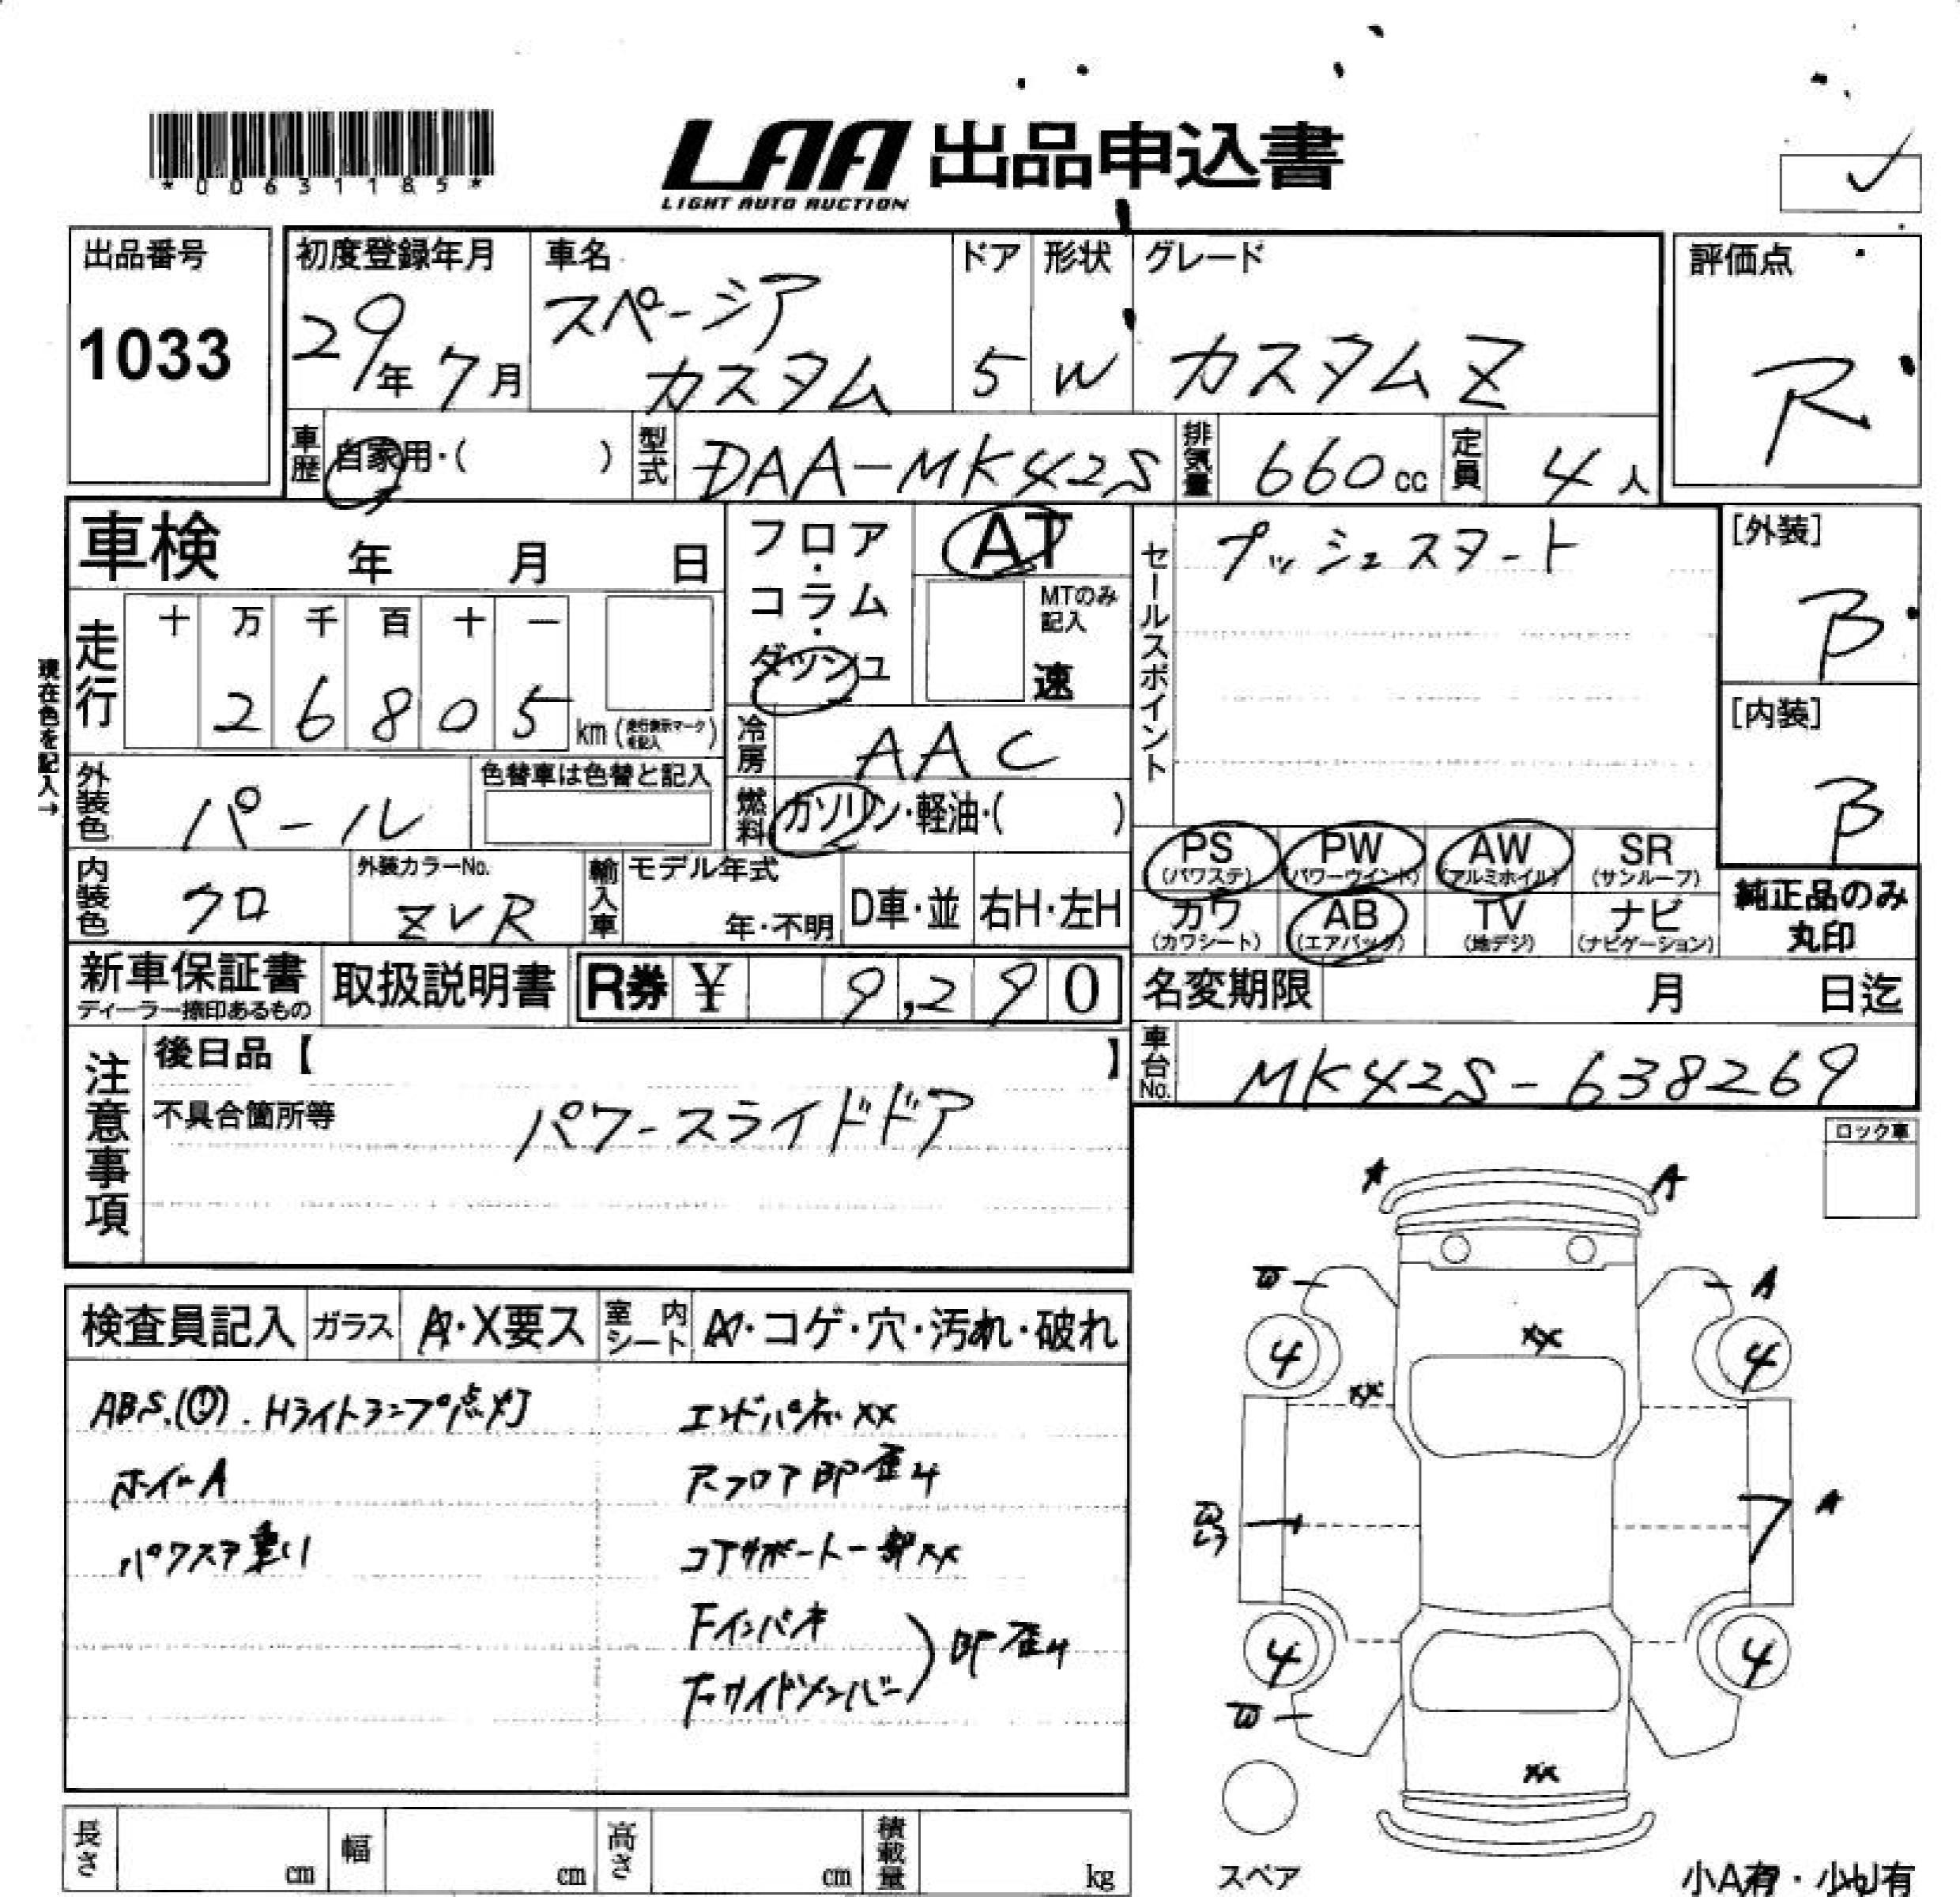 *00631185*
LAA 出品申込書
LIGHT AUTO AUCTION
出品番号
1033
初度登録年月
29年7月
車名
スペーシア
カスタム
ドア
5
形状
W
グレード
カスタムZ
評価点
R
車歴
自家用・( )
型式
DAA-MK42S
排気量
660cc
定員
4人
車検 年 月 日
フロア・コラム・ダッシュ
AT
MTのみ記入
速
セールスポイント
プッシュスタート
[外装]
B
[内装]
B
現在色を記入→
走行
十 万 千 百 十 一
2 6 8 0 5 km (走行表示マークを記入)
冷房
AAC
外装色
パール
色替車は色替と記入
燃料
ガソリン・軽油・( )
PS (パワステ)
PW (パワーウインド)
AW (アルミホイル)
SR (サンルーフ)
カワ (カワシート)
AB (エアバック)
TV (地デジ)
ナビ (ナビゲーション)
純正品のみ
丸印
内装色
クロ
外装カラーNo.
ZVR
輸入車
モデル年式
年・不明
D車・並
右H・左H
新車保証書
ディーラー捺印あるもの
取扱説明書
R券 ¥ 9,290
名変期限 月 日迄
車台No.
MK42S-638269
注意事項
後日品【 】
不具合箇所等
パワースライドドア
ロック車
検査員記入
ガラス
A・X要ス
室内シート
・コゲ・穴・汚れ・破れ
ABS.(!). Hライトランプ点灯
ホイールA
パワステ重い
エンドパネルXX
Rフロア BP歪み
コアサポート一部XX
Fインパネ
Fサイドメンバー
BP歪み
A
A
W
A
XX
XX
4
4
W
A
4
4
W
XX
スペア
小A有・小U有
長さ cm
幅 cm
高さ cm
積載量 kg